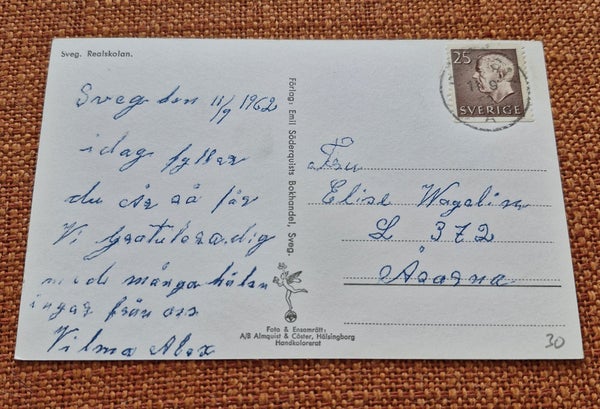 Sveg. Realskolan.
Sveg den 11/9 1962
idag fyller
du År så får
Vi gratulera dig
med många hälsn
ingar från oss
Vilma Alex
Förlag: Emil Söderquists Bokhandel, Sveg.
Foto & Ensamrätt:
A/B Almquist & Cöster, Hälsingborg
Handkolorerat
25
SVERIGE
A
Fru
Elise Wagelin
L 372
Åsarna
30